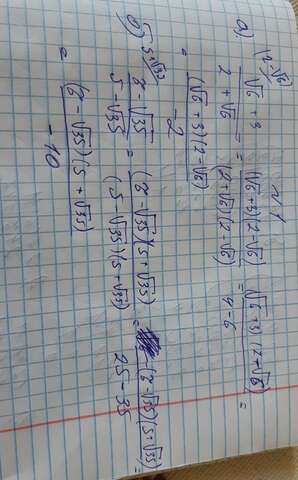 N1
а) (2-√6)/ (√6 + 3)/(2 + √6) = ((√6+3)(2-√6))/((2+√6)(2-√6)) = ((√6+3)(2+√6))/(4-6) =
= ((√6+3)(2-√6))/(-2)
б) 5+√35/ (7-√35)/(5-√35) = ((7-√35)(5+√35))/((5-√35)(5+√35)) = (-(7-√35)(5+√35))/(25-35) =
= ((7-√35)(5+√35))/(-10)